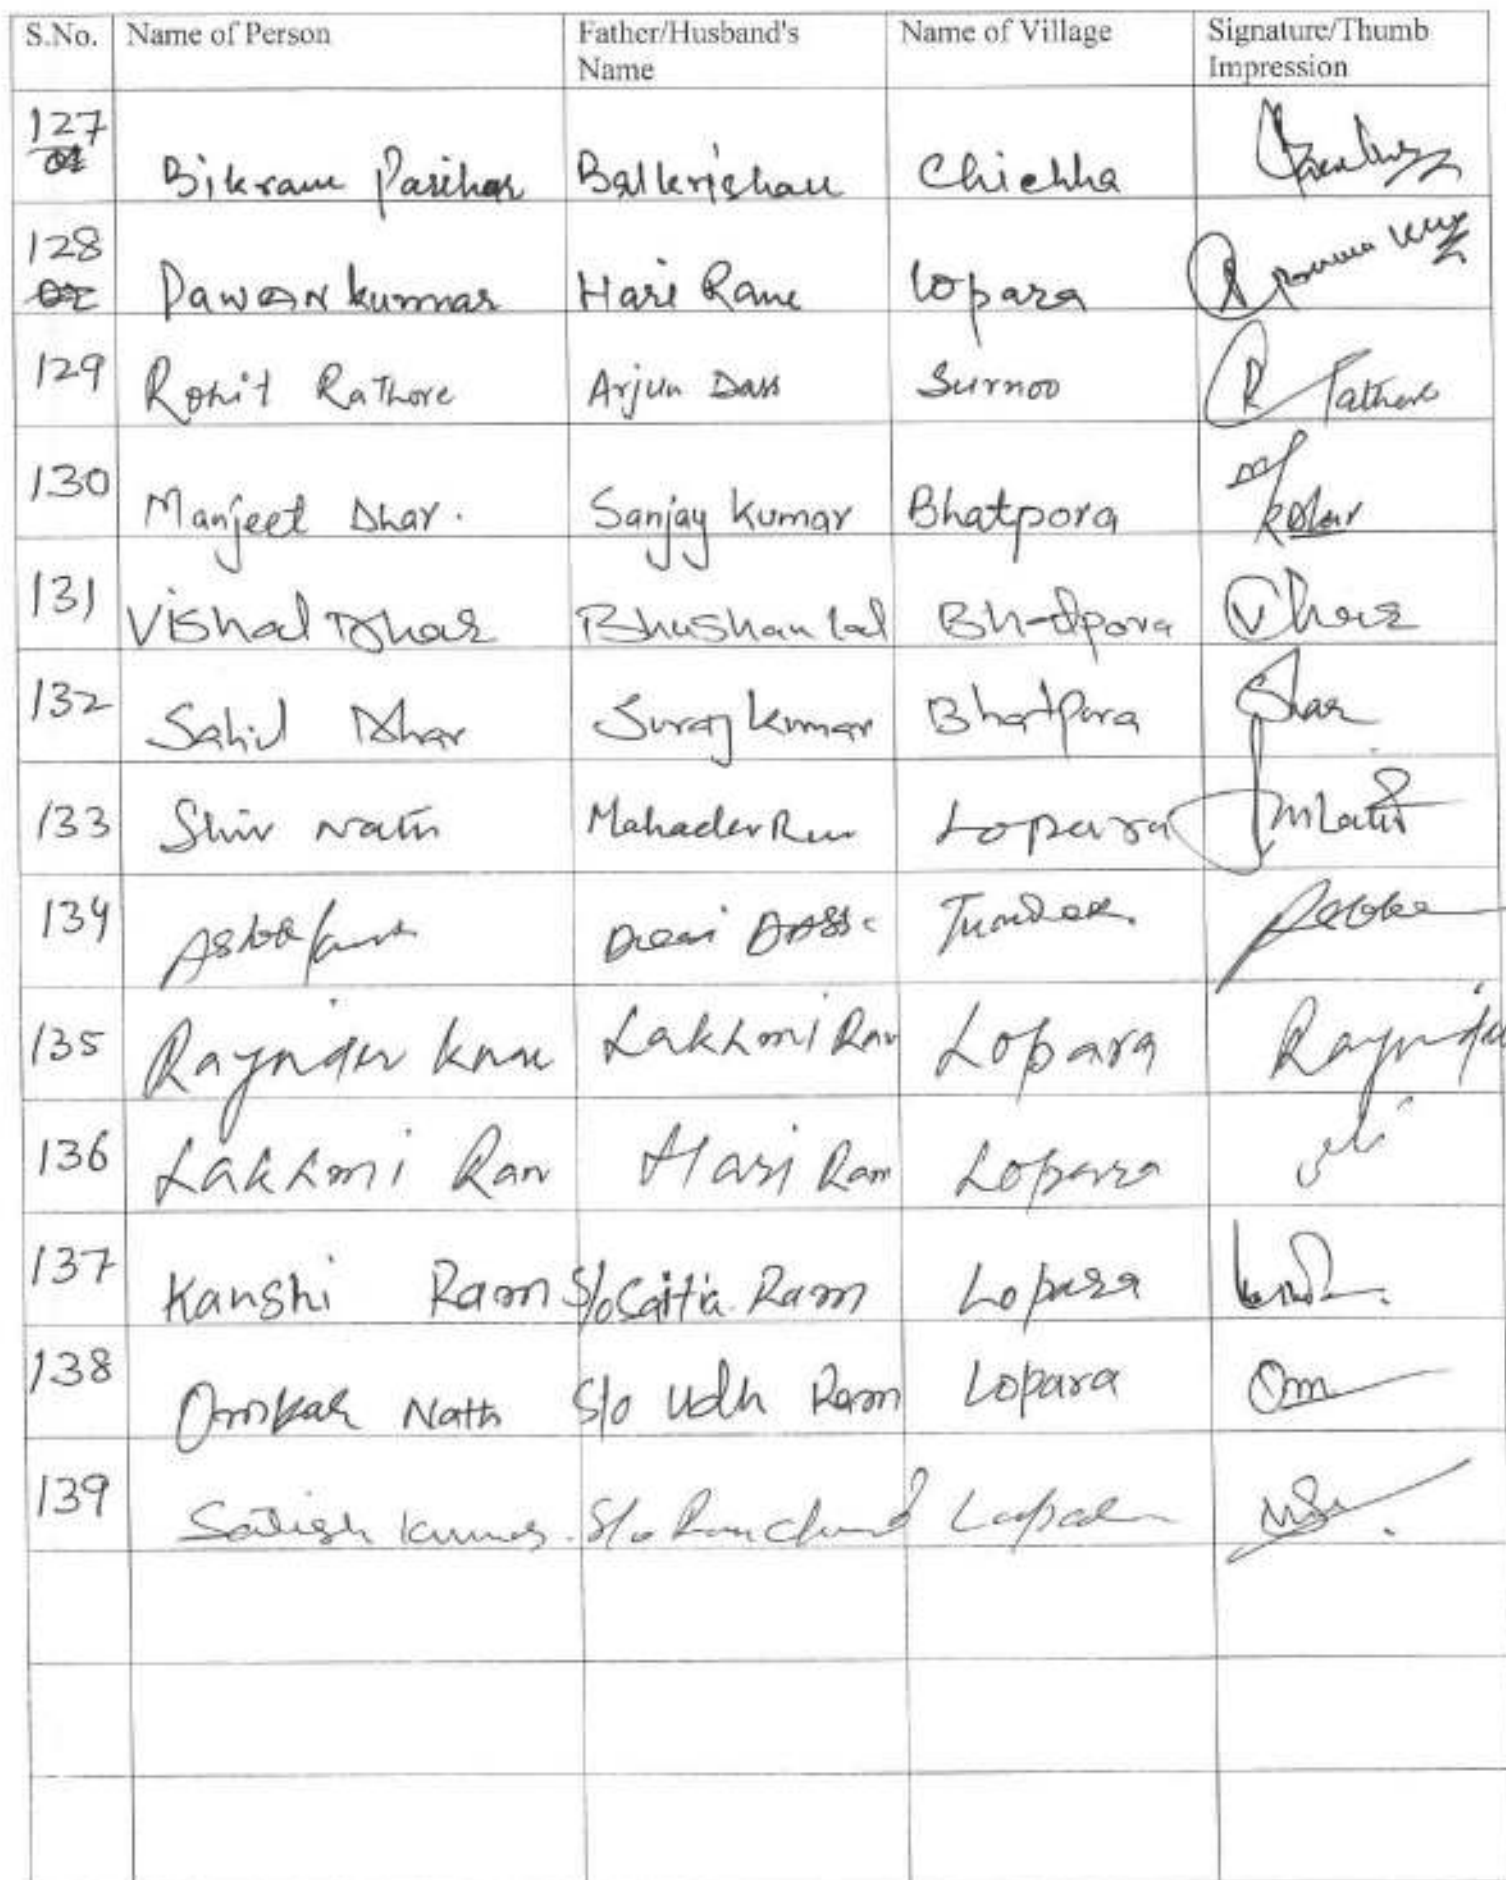 S.No. Name of Person Father/Husband's Name Name of Village Signature/Thumb Impression
127 Bikram Parihar Balkrishan Chichha
128 Pawan kumar Hari Ram Lopara
129 Rohit RaThore Arjun Dass Surnoo R Rathore
130 Manjeet Dhar. Sanjay Kumar Bhatpora
131 Vishal Dhar Bhushan lal Bhatpora VDhar
132 Sahil Dhar Suraj kumar Bhatpora
133 Shiv Nath Mahadev Ram Lopara
134 Ashok Kumar Dass
135 Rajinder Lakhmi Ram Lopara Rajinder
136 Lakhmi Ram Hari Ram Lopara
137 Kanshi Ram S/o Ram Lopara
138 Omkar Nath S/o Udh Ram Lopara Om
139 Satish Kumar. S/o Ram Chand